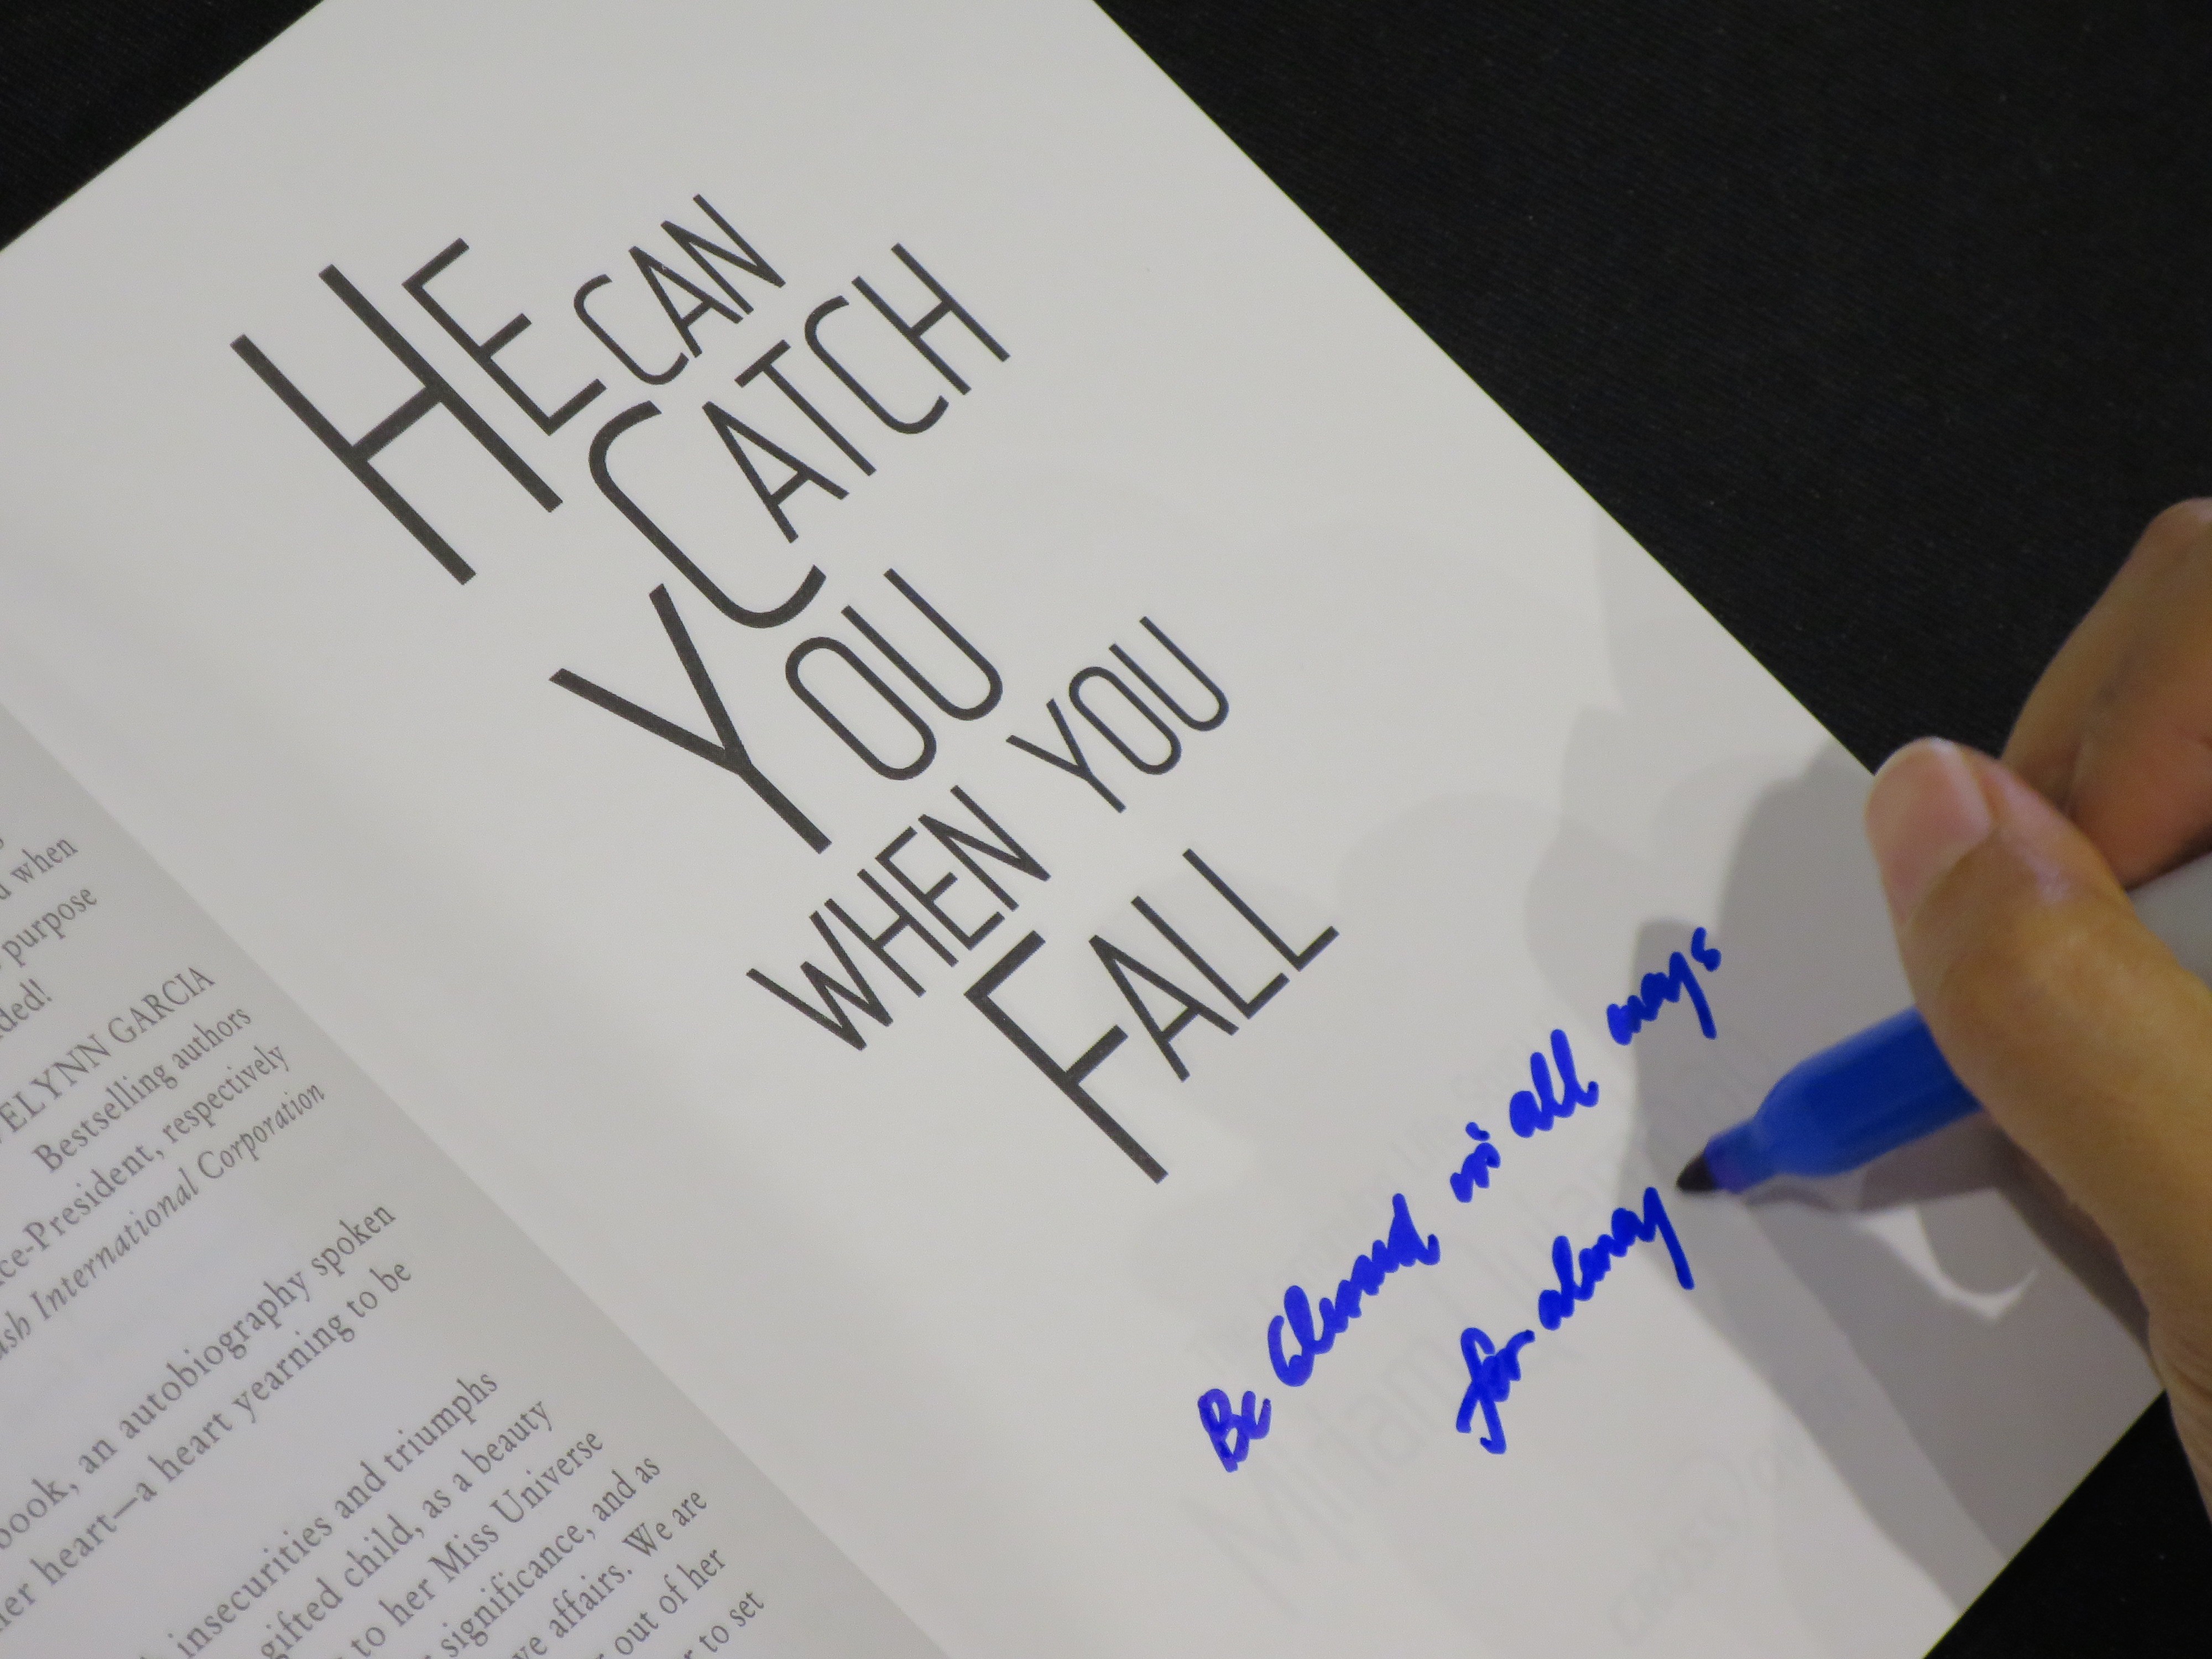 d when
purpose
ded!
ELYNN GARCIA
Bestselling authors
ce-President, respectively
ash International Corporation
book, an autobiography spoken
her heart—a heart yearning to be
insecurities and triumphs
gifted child, as a beauty
to her Miss Universe
significance, and as
ve affairs. We are
out of her
r to set
HE CAN
CATCH
YOU
WHEN YOU
FALL
Be in all ways
for alway